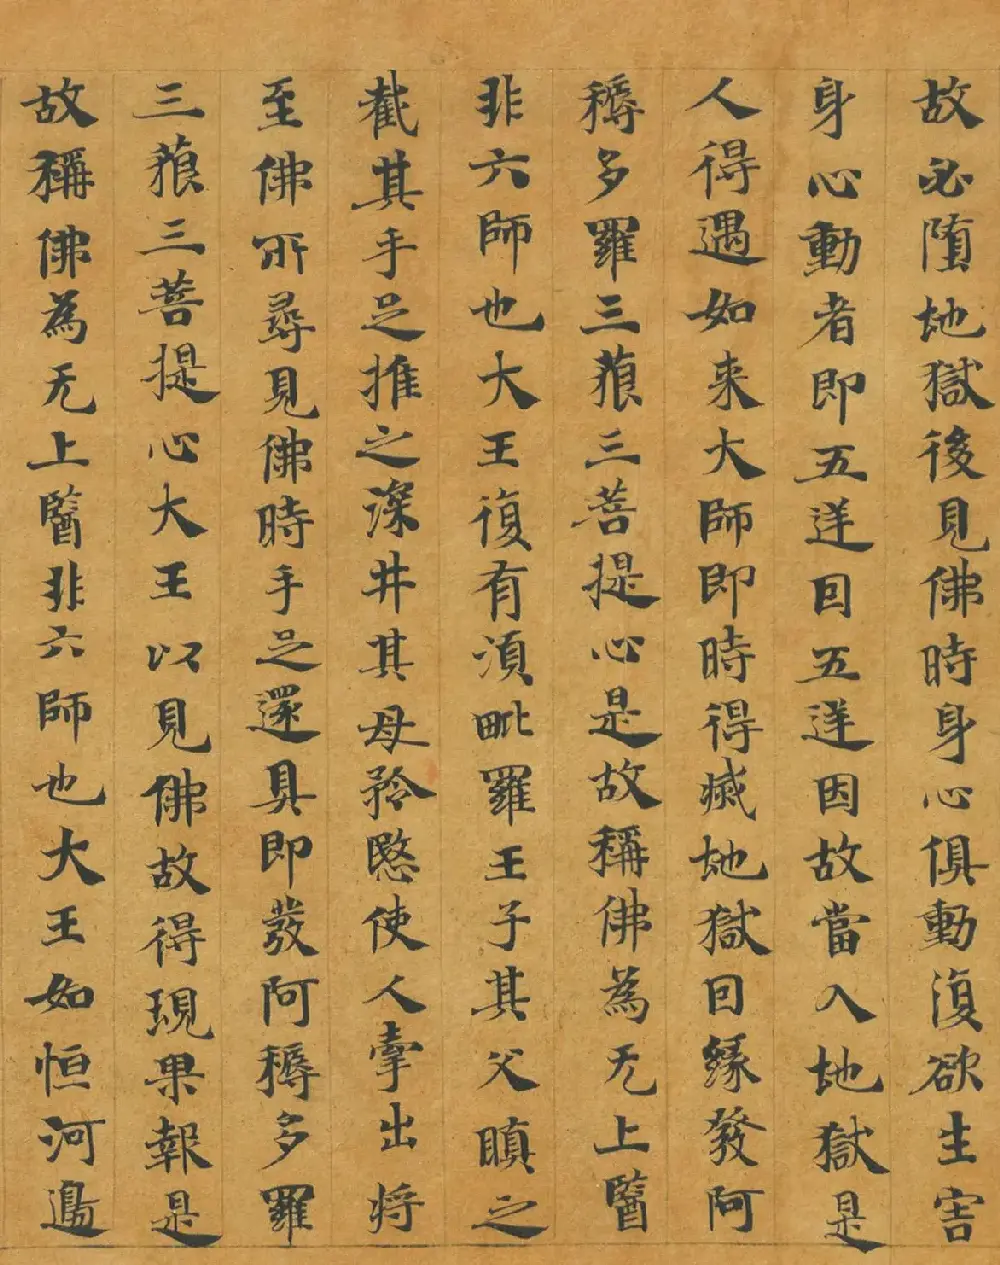 故必堕地獄後見佛時身心俱動復欲生害
身心動者即五逆因五逆因故當入地獄是
人得遇如来大師即時得滅地獄因緣發阿
耨多羅三藐三菩提心是故稱佛為无上醫
非六師也大王復有湏毗羅王子其父瞋之
截其手足推之深井其母矜愍使人牽出将
至佛所尋見佛時手足還具即發阿耨多羅
三藐三菩提心大王以見佛故得現果報是
故稱佛為无上醫非六師也大王如恒河邊